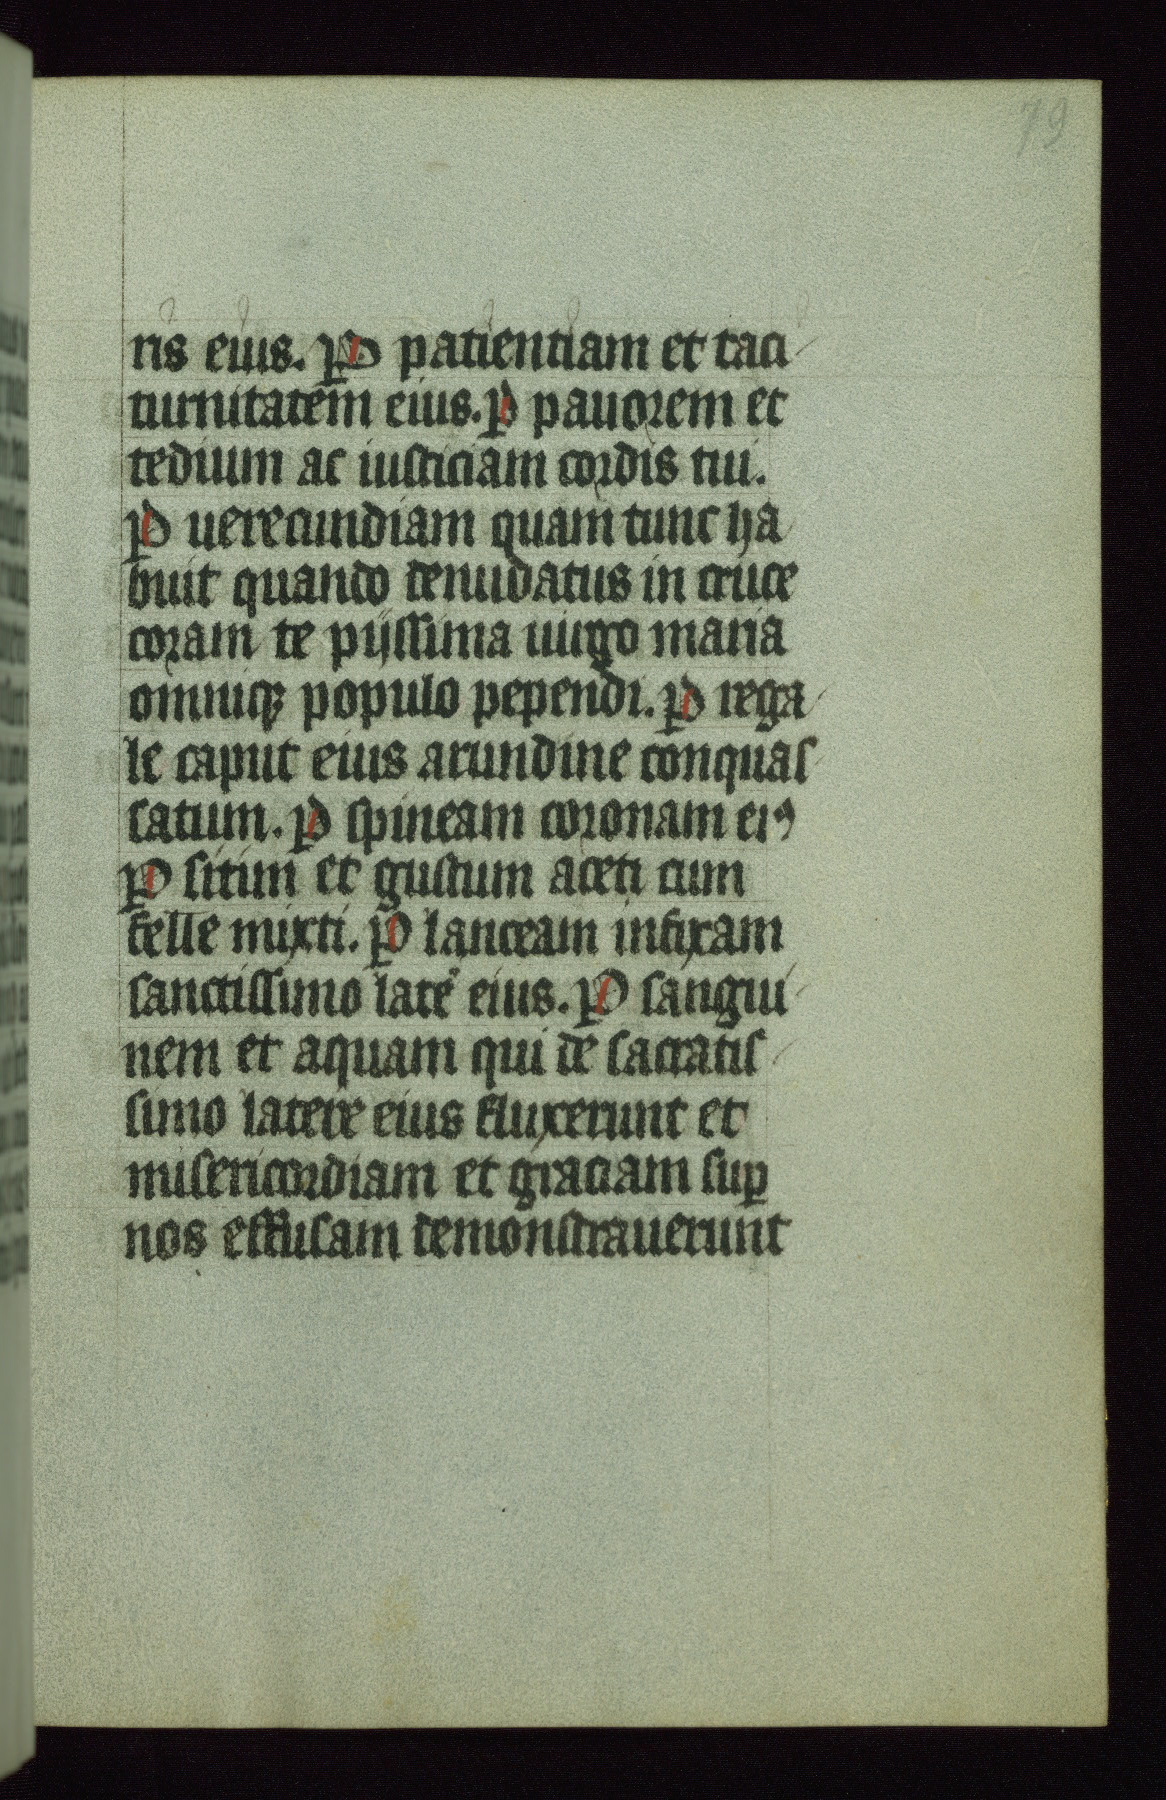 79
ris eius. P patientiam et taci
turnitatem eius. P pauorem et
tedium ac iusticiam cordis tui.
P uerecundiam quam tunc ha
buit quando denudatus in cruce
coram te pijssima uirgo maria
omniqꝫ populo pependi. P rega
le caput eius arundine conquas
satum. P spineam coronam eiꝰ
P sitim et gustum aceti cum
felle mixti. P lanceam infixam
sanctissimo late͛ eius. P sangui
nem et aquam qui de sacratis
simo latere eius fluxerunt et
misericordiam et graciam suꝑ
nos effusam demonstrauerunt